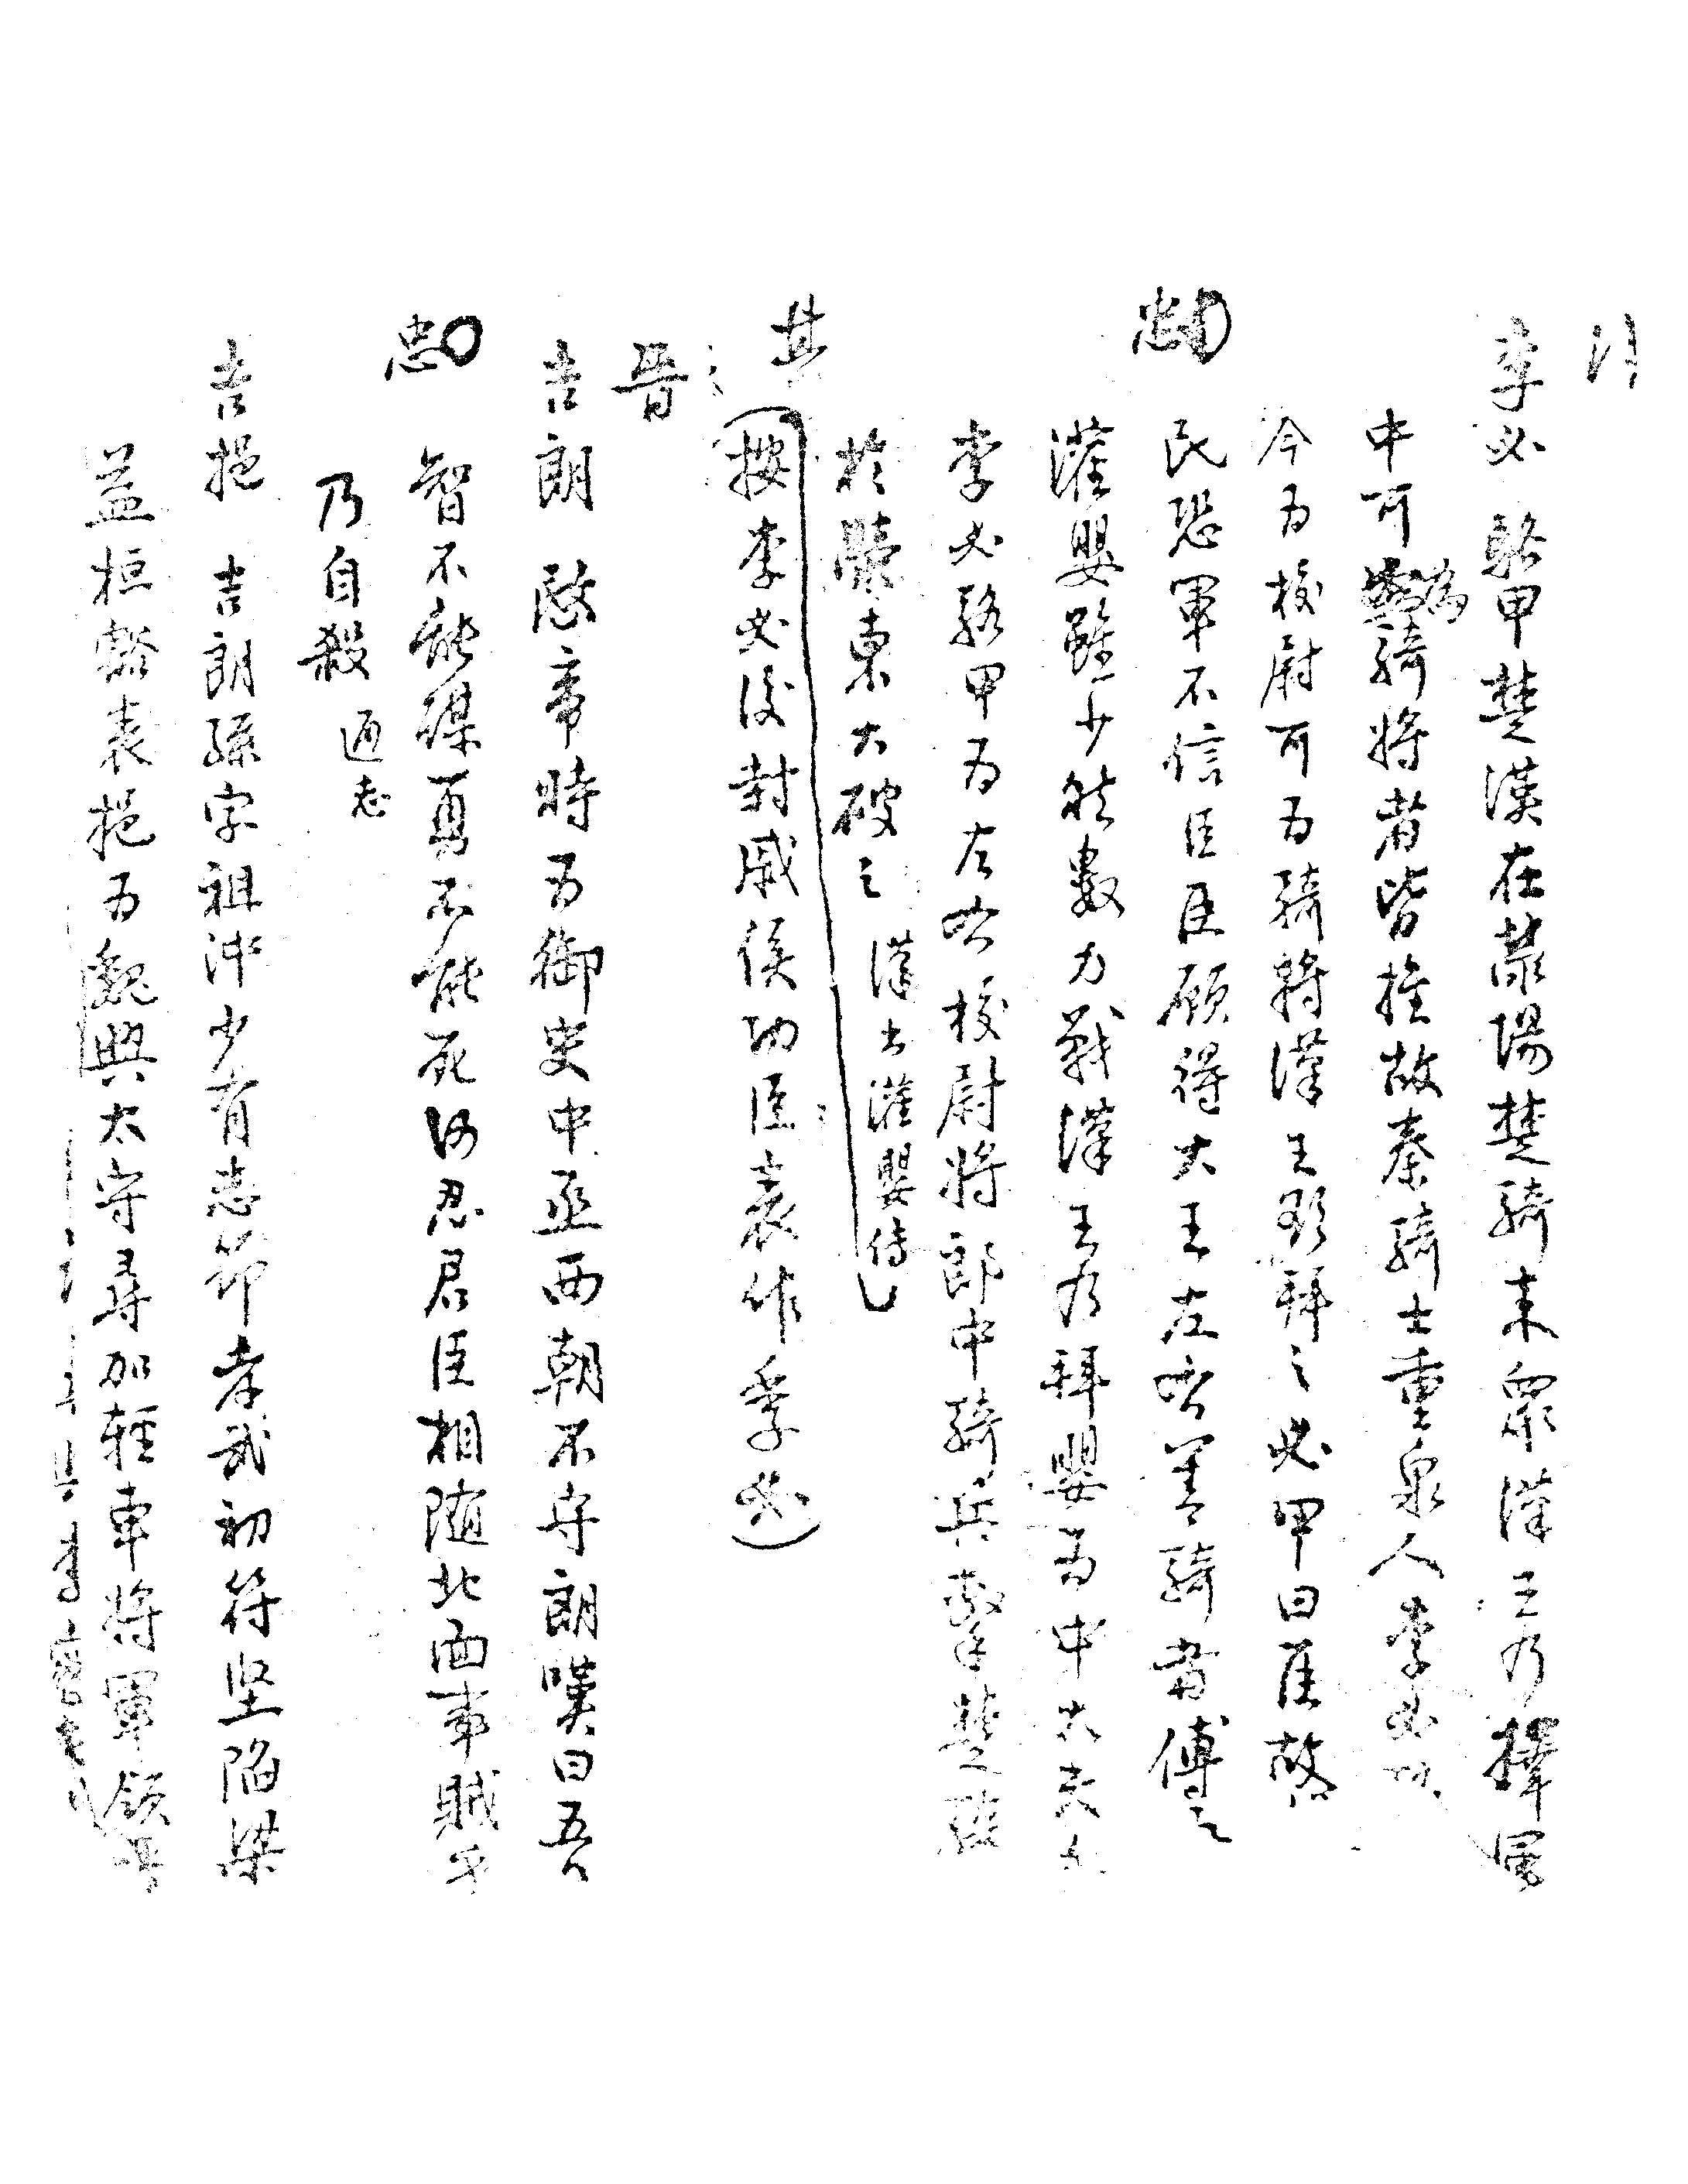 李必 駱甲楚漢在滎陽楚騎来衆漢王乃擇軍
中可為騎將者皆推故秦騎士重泉人李必駱
今为校尉可为騎將漢王欲拜之必甲曰臣故秦
民恐軍不信臣臣願得大王左右善騎者傅之
灌嬰雖少然數力戰漢王乃拜嬰为中大夫令
李必駱甲为左右校尉將郎中騎兵擊楚騎
於滎東大破之 漢书灌嬰傳
其
(按李必後封戚侯功臣表作季必)
晉
吉朗 愍帝時为御史中丞西朝不守朗嘆曰吾
忠
智不能謀勇不能死何忍君臣相随北面事賊乎
乃自殺 通志
吉挹 吉朗孫字祖沖少有志節孝武初符坚陷梁
益桓豁表挹为魏興太守尋加輕車將軍領晉